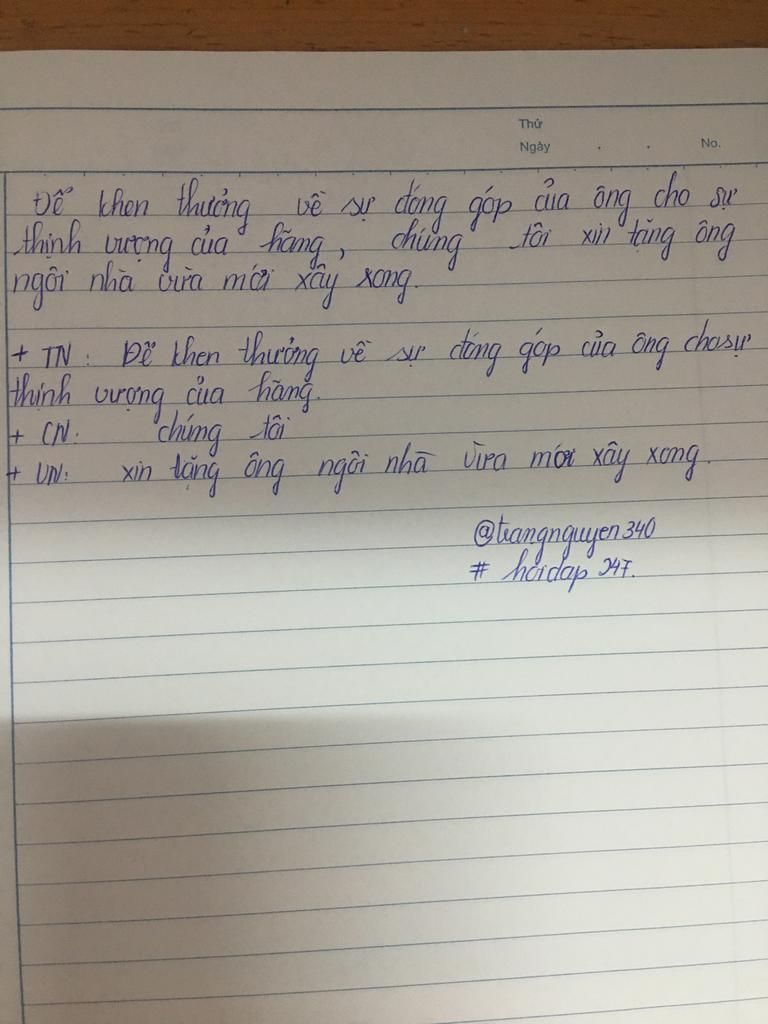 Thứ
Ngày . . No.
Để khen thưởng về sự đóng góp của ông cho sự
thịnh vượng của hãng, chúng tôi xin tặng ông
ngôi nhà vừa mới xây xong.
+ TN: Để khen thưởng về sự đóng góp của ông cho sự
thịnh vượng của hãng.
+ CN: chúng tôi
+ VN: xin tặng ông ngôi nhà vừa mới xây xong.
@trangnguyen340
# hoidap 247.